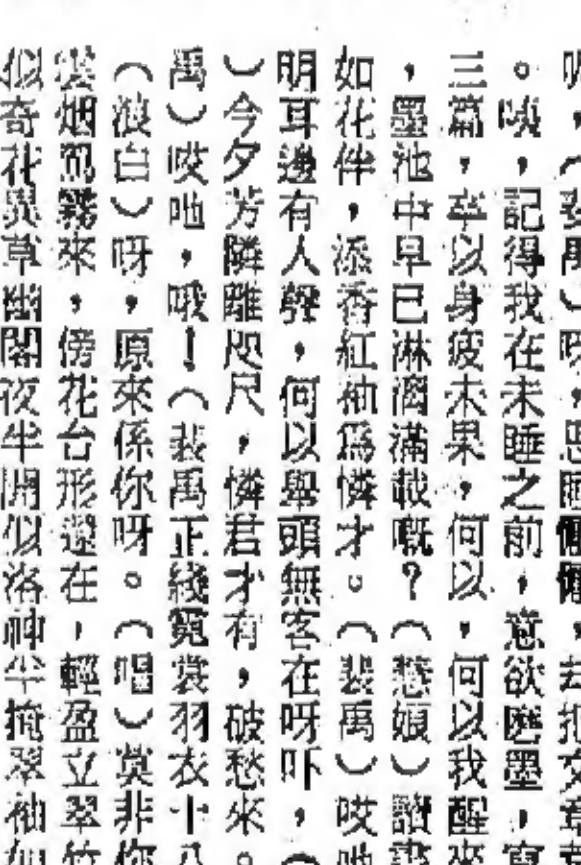 ，（裴禹）哎，思睡
。咦，記得我在未睡之前，意欲磨墨，寫
三篇，卒以身疲未果，何以，何以我醒來
，墨池中早已淋漓滿載嘅？（慧娘）讀書
如花伴，添香紅袖爲憐才。（裴禹）哎吔
明耳邊有人聲，何以舉頭無客在呀吓，（
）今夕芳隣離咫尺，憐君才有，破愁來。
禹）哎吔，哦！（裴禹正綫霓裳羽衣十八
（浪白）呀，原來係你呀。（唱）莫非你
雲烟爲霧來，傍花台形還在，輕盈立翠竹
似奇花異草幽閣夜半開似洛神半掩翠袖如